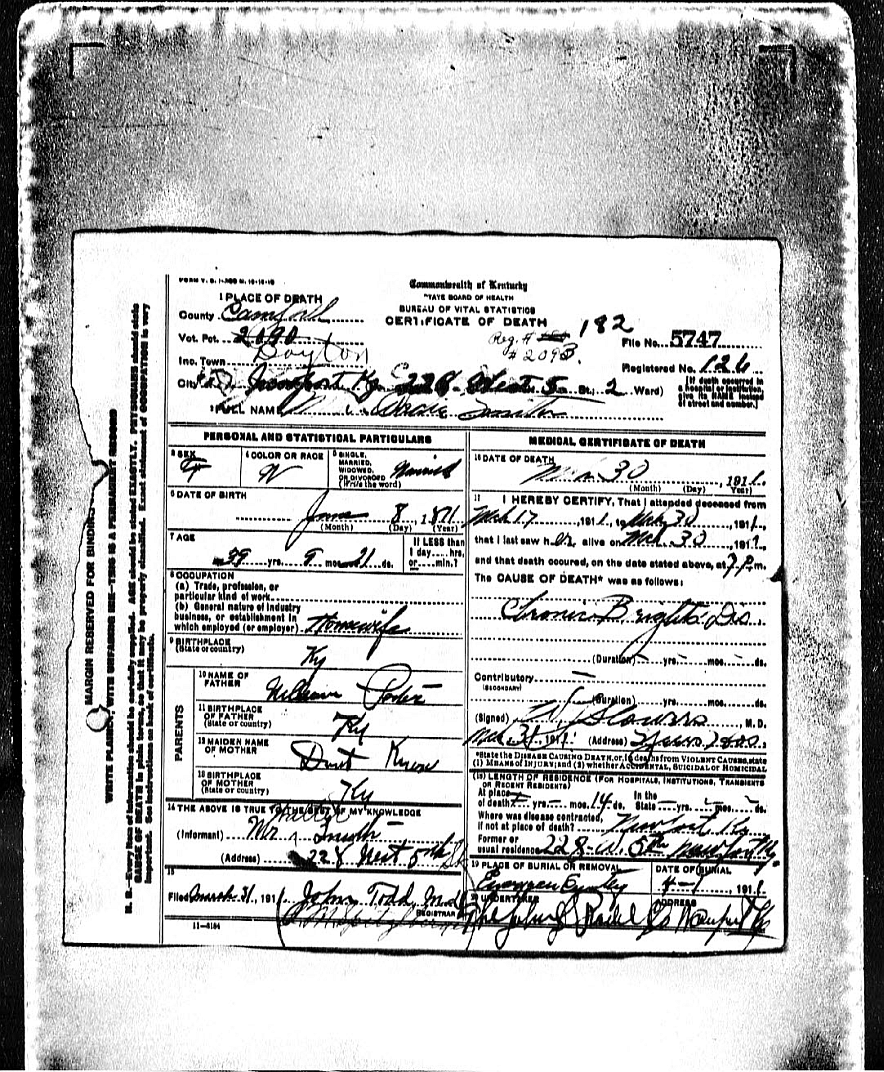 FORM V. S. 1-
Commonwealth of Kentucky
STATE BOARD OF HEALTH
BUREAU OF VITAL STATISTICS
CERTIFICATE OF DEATH
1 PLACE OF DEATH
County
Vot. Pct. 2090
Inc. Town Dayton
City Newport Ky 228 West 5 St. 2 Ward)
Reg. # 182
# 2093
File No. 5747
Registered No. 126
[If death occurred in a hospital or institution, give its NAME instead of street and number.]
2 FULL NAME Smith
PERSONAL AND STATISTICAL PARTICULARS
3 SEX F
4 COLOR OR RACE W
5 SINGLE, MARRIED, WIDOWED, OR DIVORCED (Write the word) Married
6 DATE OF BIRTH
June 8, 1871
(Month) (Day) (Year)
7 AGE
39 yrs. 9 mos. 21 ds.
If LESS than 1 day....hrs. or....min.?
8 OCCUPATION
(a) Trade, profession, or particular kind of work
(b) General nature of industry business, or establishment in which employed (or employer) Housewife
9 BIRTHPLACE
(State or country) Ky
PARENTS
10 NAME OF FATHER William
11 BIRTHPLACE OF FATHER (State or country) Ky
12 MAIDEN NAME OF MOTHER Dont Know
13 BIRTHPLACE OF MOTHER (State or country) Ky
14 THE ABOVE IS TRUE TO THE BEST OF MY KNOWLEDGE
(Informant) Mr Smith
(Address) 228 West 5th St
15
Filed March 31, 1911 John Todd, M.d
REGISTRAR
11-5184
MEDICAL CERTIFICATE OF DEATH
16 DATE OF DEATH
Mch 30, 1911.
(Month) (Day) (Year)
17 I HEREBY CERTIFY, That I attended deceased from
Mch 17, 1911, to Mch 30, 1911,
that I last saw her alive on Mch 30 1911,
and that death occured, on the date stated above, at 7 P. m.
The CAUSE OF DEATH* was as follows:
Chronic Brights Dis.
(Duration) yrs. mos. ds.
Contributory
(SECONDARY)
(Duration) yrs. mos. ds.
(Signed) M. D.
Mch 31, 1911 (Address)
*State the DISEASE CAUSING DEATH, or, in deaths from VIOLENT CAUSES, state (1) MEANS OF INJURY; and (2) whether ACCIDENTAL, SUICIDAL or HOMICIDAL
(18) LENGTH OF RESIDENCE (FOR HOSPITALS, INSTITUTIONS, TRANSIENTS OR RECENT RESIDENTS)
At place of death yrs. mos. 14 ds. In the State yrs. mos. ds.
Where was disease contracted, if not at place of death? Newport Ky
Former or usual residence 228 W. 5th Newport Ky.
19 PLACE OF BURIAL OR REMOVAL
DATE OF BURIAL
4-1 1911
20 UNDERTAKER
ADDRESS
Radel Co Newport Ky
MARGIN RESERVED FOR BINDING
WRITE PLAINLY, WITH UNFADING INK—THIS IS A PERMANENT RECORD
N. B.—Every item of information should be carefully supplied. AGE should be stated EXACTLY. PHYSICIANS should state
CAUSE OF DEATH in plain terms, so that it may be properly classified. Exact statement of OCCUPATION is very
important. See instructions on back of certificate.